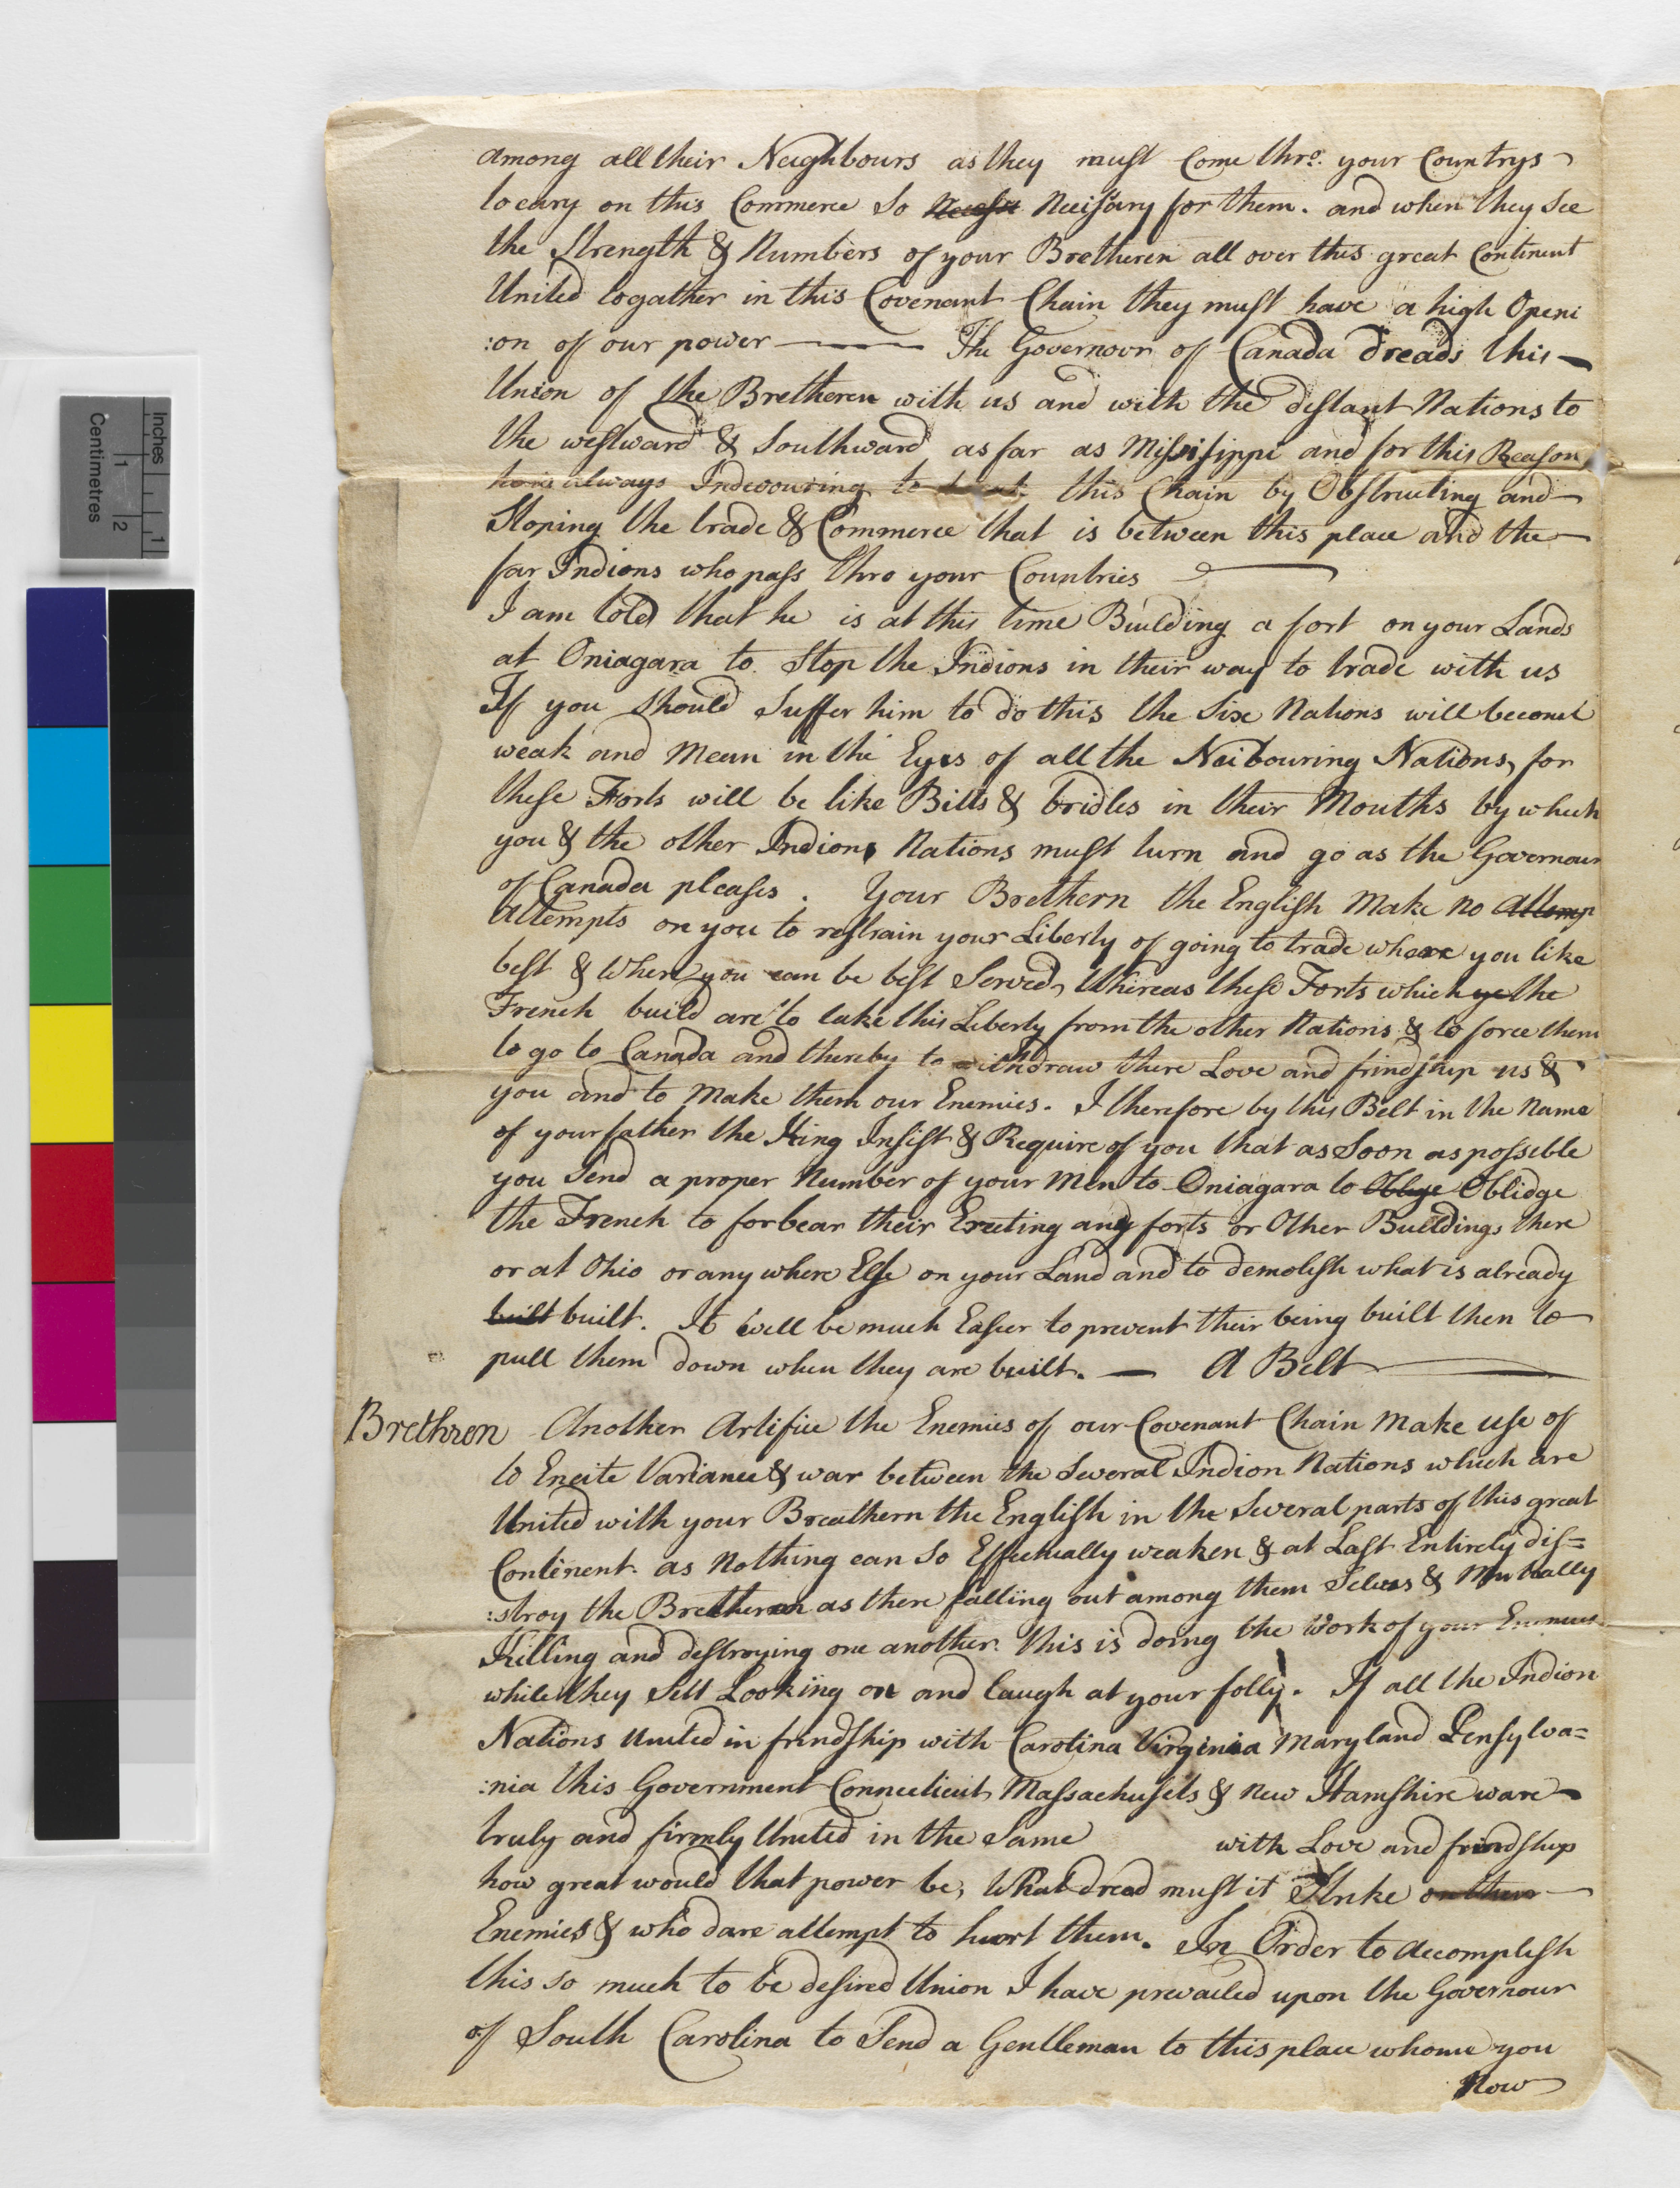 among all their Neighbours as they must Come thro. your Countrys
to cary on this Commerce so Necessi Necissary for them. and when they see
the Strength & Numbers of your Bretheren all over this great Continent
United togather in this Covenant Chain they must have a high Openi
:on of our power —— The Governour of Canada dreads this
Union of the Bretheren with us and with the distant Nations to
the westward & Southward as far as Missisippi and for this Reason
he is always Indevouring to this Chain by Obstructing and
Stoping the trade & Commerce that is between this place and the
far Indions who pass thro your Countries
I am told that he is at this time Building a fort on your Lands
at Oniagara to Stop the Indions in their way to trade with us
If you should Suffer him to do this the Six Nations will become
weak and Mean in the Eyes of all the Neibouring Nations, for
these Forts will be like Bitts & bridles in their Mouths by which
you & the other Indions Nations must turn and go as the Governour
of Canada pleases. Your Brethern the English Make no Attemp
Attempts on you to restrain your Liberty of going to trade where you like
best & where you can be best Served, Whereas these Forts which ye the
French build are to take this Liberty from the other Nations & to force them
to go to Canada and thereby to withdraw there Love and frindship us &
you and to Make them our Enemies. I therefore by this Belt in the Name
of your father the King Insist & Require of you that as Soon as possible
you Send a proper Number of your Men to Oniagara to Oblige Oblidge
the French to forbear their Erecting any forts or Other Buildings there
or at Ohio or any where Else on your Land and to demolish what is already
built built. It will be much Easier to prevent their being built then to
pull them down when they are built. — A Belt
Brethren Another Artifice the Enemies of our Covenant Chain Make use of
to Encite Variance & war between the Several Indion Nations which are
United with your Breathern the English in the Several parts of this great
Continent. as Nothing can So Effectually weaken & at Last Entirely dis=
:stroy the Bretheren as there falling out among them Selves & Mutually
Killing and destroying one another. this is doing the Work of your Enemies
while they Sitt Looking on and laugh at your folly. If all the Indion
Nations United in frindship with Carolina Virginia Maryland Pensylva=
:nia this Government Connecticut Massachusets & New Hamshire ware
truly and firmly United in the Same with Love and frindship
how great would that power be, What dread must it Strike on their
Enemies & who dare attempt to huort them. In Order to Accomplish
this so much to be desired Union I have prevailed upon the Governour
of South Carolina to Send a Gentleman to this place whome you
Now